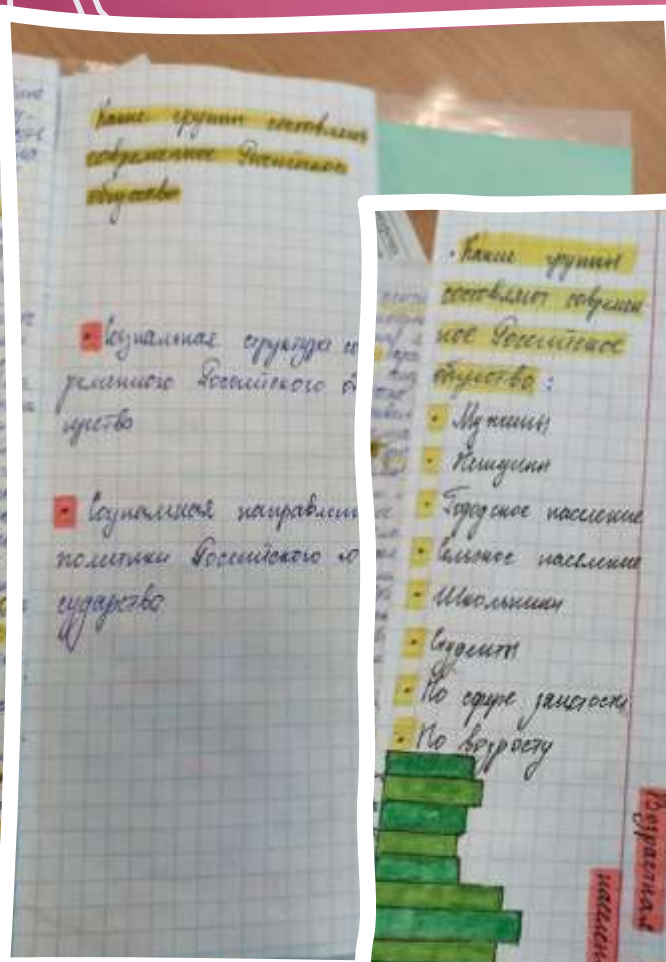 Какие группы составляют
современное Российское
общество
• Социальная структура со
ременного Российского об
щество
• Социальная направлен
политики Российского го
сударство
• Какие группы
составляют современ
ное Российское
общество:
• Мужчины
• Женщины
• Городское население
• Сельское население
• Школьники
• Студенты
• По сфере занятости
• По возросту
Возрастная
населен